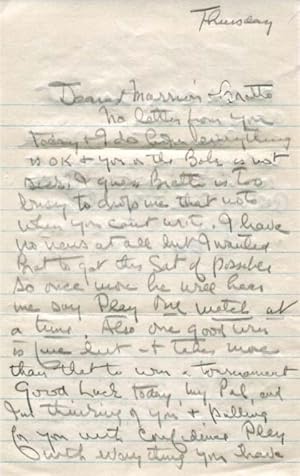 Thursday
Dearest Marrion &
No letter from you
today & I do hope everything
is OK & you or the Babe is not
sick. I guess Bratto is too
busy to drop me that note
when you can't write. I have
no news at all but I wanted
Brat to get this Sat if possible
so once more he will hear
me say Play One match at
a time. Also one good win
is fine but it takes more
than that to win a tournament
Good Luck today, my Pal, and
I'm thinking of you & pulling
for you with confidence Play
with everything you have